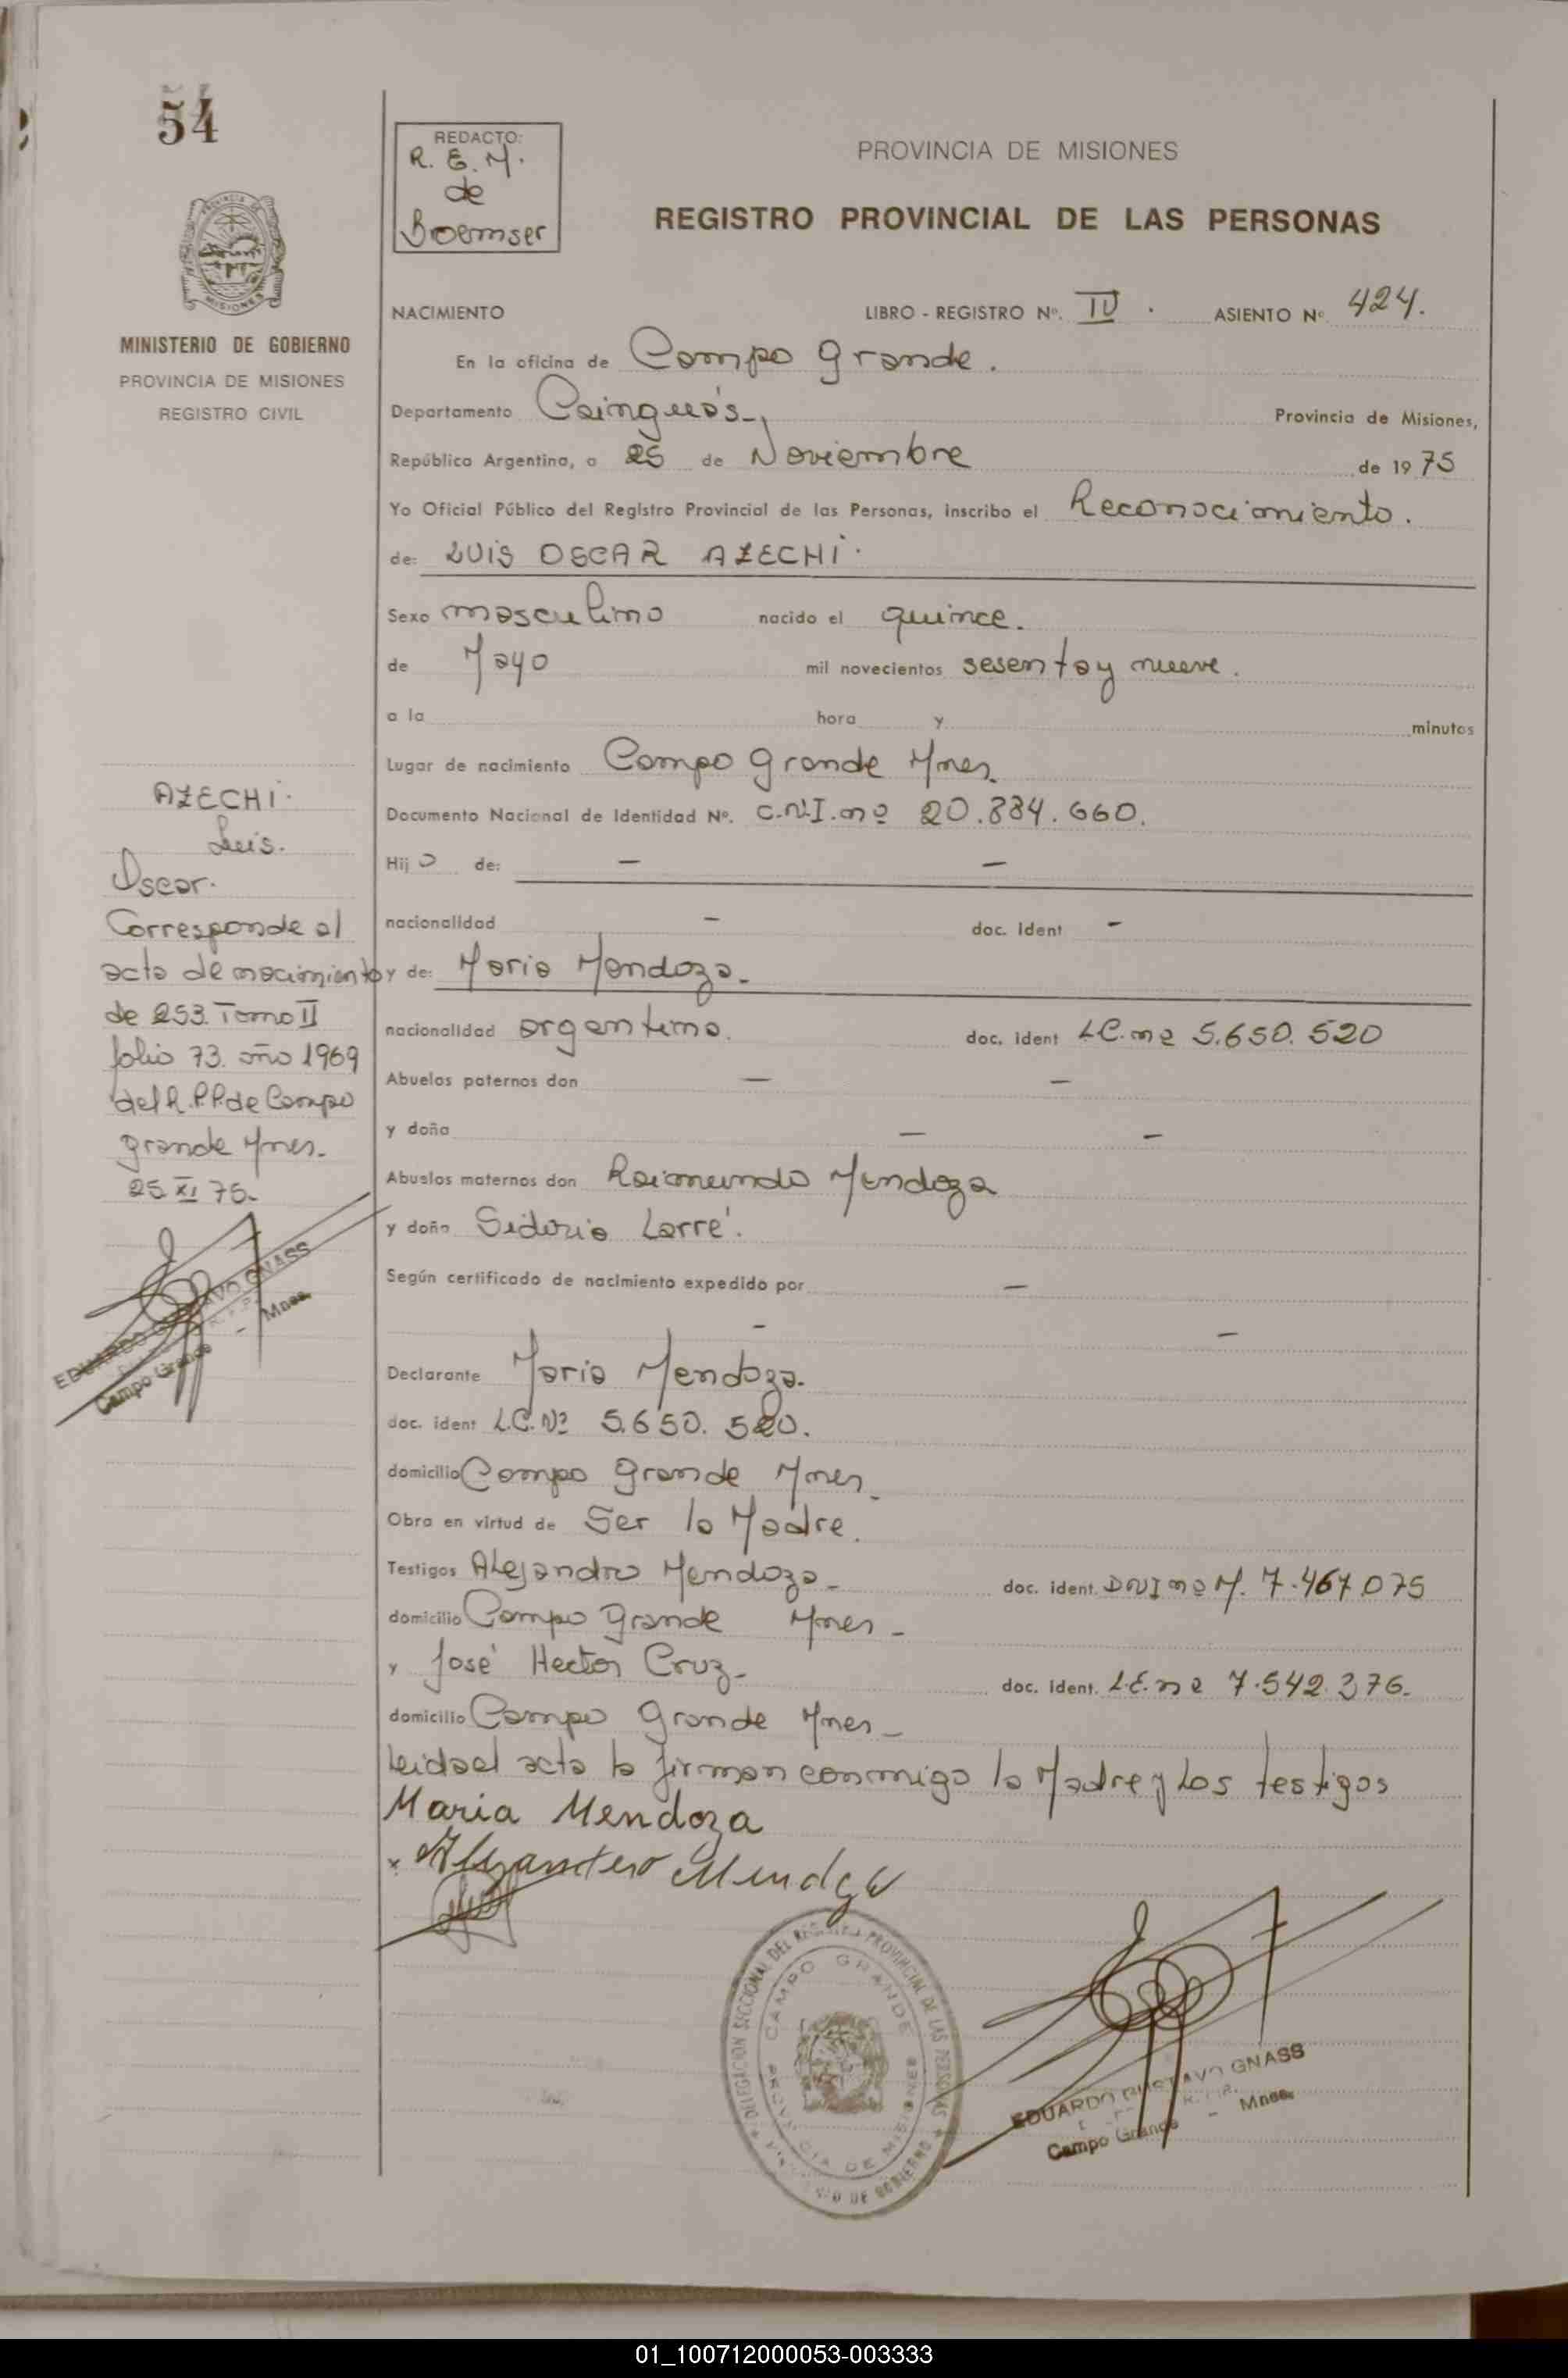 54
REDACTO:
R. E. M.
de
Boemser
PROVINCIA DE MISIONES
REGISTRO PROVINCIAL DE LAS PERSONAS
MINISTERIO DE GOBIERNO
PROVINCIA DE MISIONES
REGISTRO CIVIL
NACIMIENTO LIBRO - REGISTRO Nº. IV. ASIENTO Nº 424.
En la oficina de Campo Grande.
Departamento Cainguás.- Provincia de Misiones,
República Argentina, a 25 de Noviembre de 1975
Yo Oficial Público del Registro Provincial de las Personas, inscribo el Reconocimiento.
de: LUIS OSCAR AZECHI.
Sexo masculino nacido el quince.
de Mayo mil novecientos sesenta y nueve.
a la hora y minutos
Lugar de nacimiento Campo Grande Mnes.
Documento Nacional de Identidad Nº. C.N.I. nº 20.884.660.
Hijo de: — —
nacionalidad — doc. ident -
y de: Maria Mendoza.-
nacionalidad argentina. doc. ident L.C. nº 5.650.520
Abuelos paternos don — —
y doña — —
Abuelos maternos don Raimundo Mendoza
y doña Larré.
Según certificado de nacimiento expedido por —
- —
Declarante Maria Mendoza.
doc. ident L.C. Nº 5.650.520.
domicilio Campo Grande Mnes.-
Obra en virtud de Ser la Madre.
Testigos Alejandro Mendoza.- doc. ident. DNI nº M. 7.467.075
domicilio Campo Grande Mnes.-
y José Hector Cruz.- doc. ident. L.E. nº 7.542.376.-
domicilio Campo Grande Mnes.-
Leida el acta la firman conmigo la Madre y Los testigos
Maria Mendoza
x Alejandro Mendoza
AZECHI.
Luis.
Oscar.
Corresponde al
acta de nacimiento
de 253. Tomo II
folio 73. año 1969
del R.P.P. de Campo
Grande Mnes.-
25 XI 75.-
EDUARDO GUSTAVO GNASS
Campo Grande - Mnes.
DELEGACION SECCIONAL DEL REGISTRO PROVINCIAL DE LAS PERSONAS
MINISTERIO DE GOBIERNO
CAMPO GRANDE
PROVINCIA DE MISIONES
EDUARDO GUSTAVO GNASS
Campo Grande - Mnes.
01_100712000053-003333